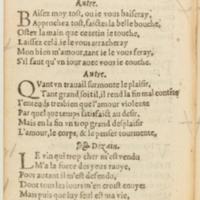 Autre.
BAisez moy tost, ou ie vous baiseray,
Approchez tost, faictes la belle bouche,
Ostez la main que ce tetin ie touche,
Laissez cela, ie le vous arracheray
Mon bien m'amour, tant ie le vous feray,
S'il faut qu'vn iour auec vous ie touche.
Autre.
QVant vn trauail surmonte le plaisir,
Tant grand soit il, il rend la fin mal contente
I'entends tresbien que l'amour violente
Par quelque temps satisfait au desir.
Mais en la fin vn trop grand desplaisir
L'amour, le corps, & le penser tourmente,
Dizain.
LE vin qui trop cher m'est vendu
M'a la force des yeux rauye,
Pour autant il m'est defendu,
Dont tous les iours m'en croist enuye
Mais puis que luy seul est ma vie,